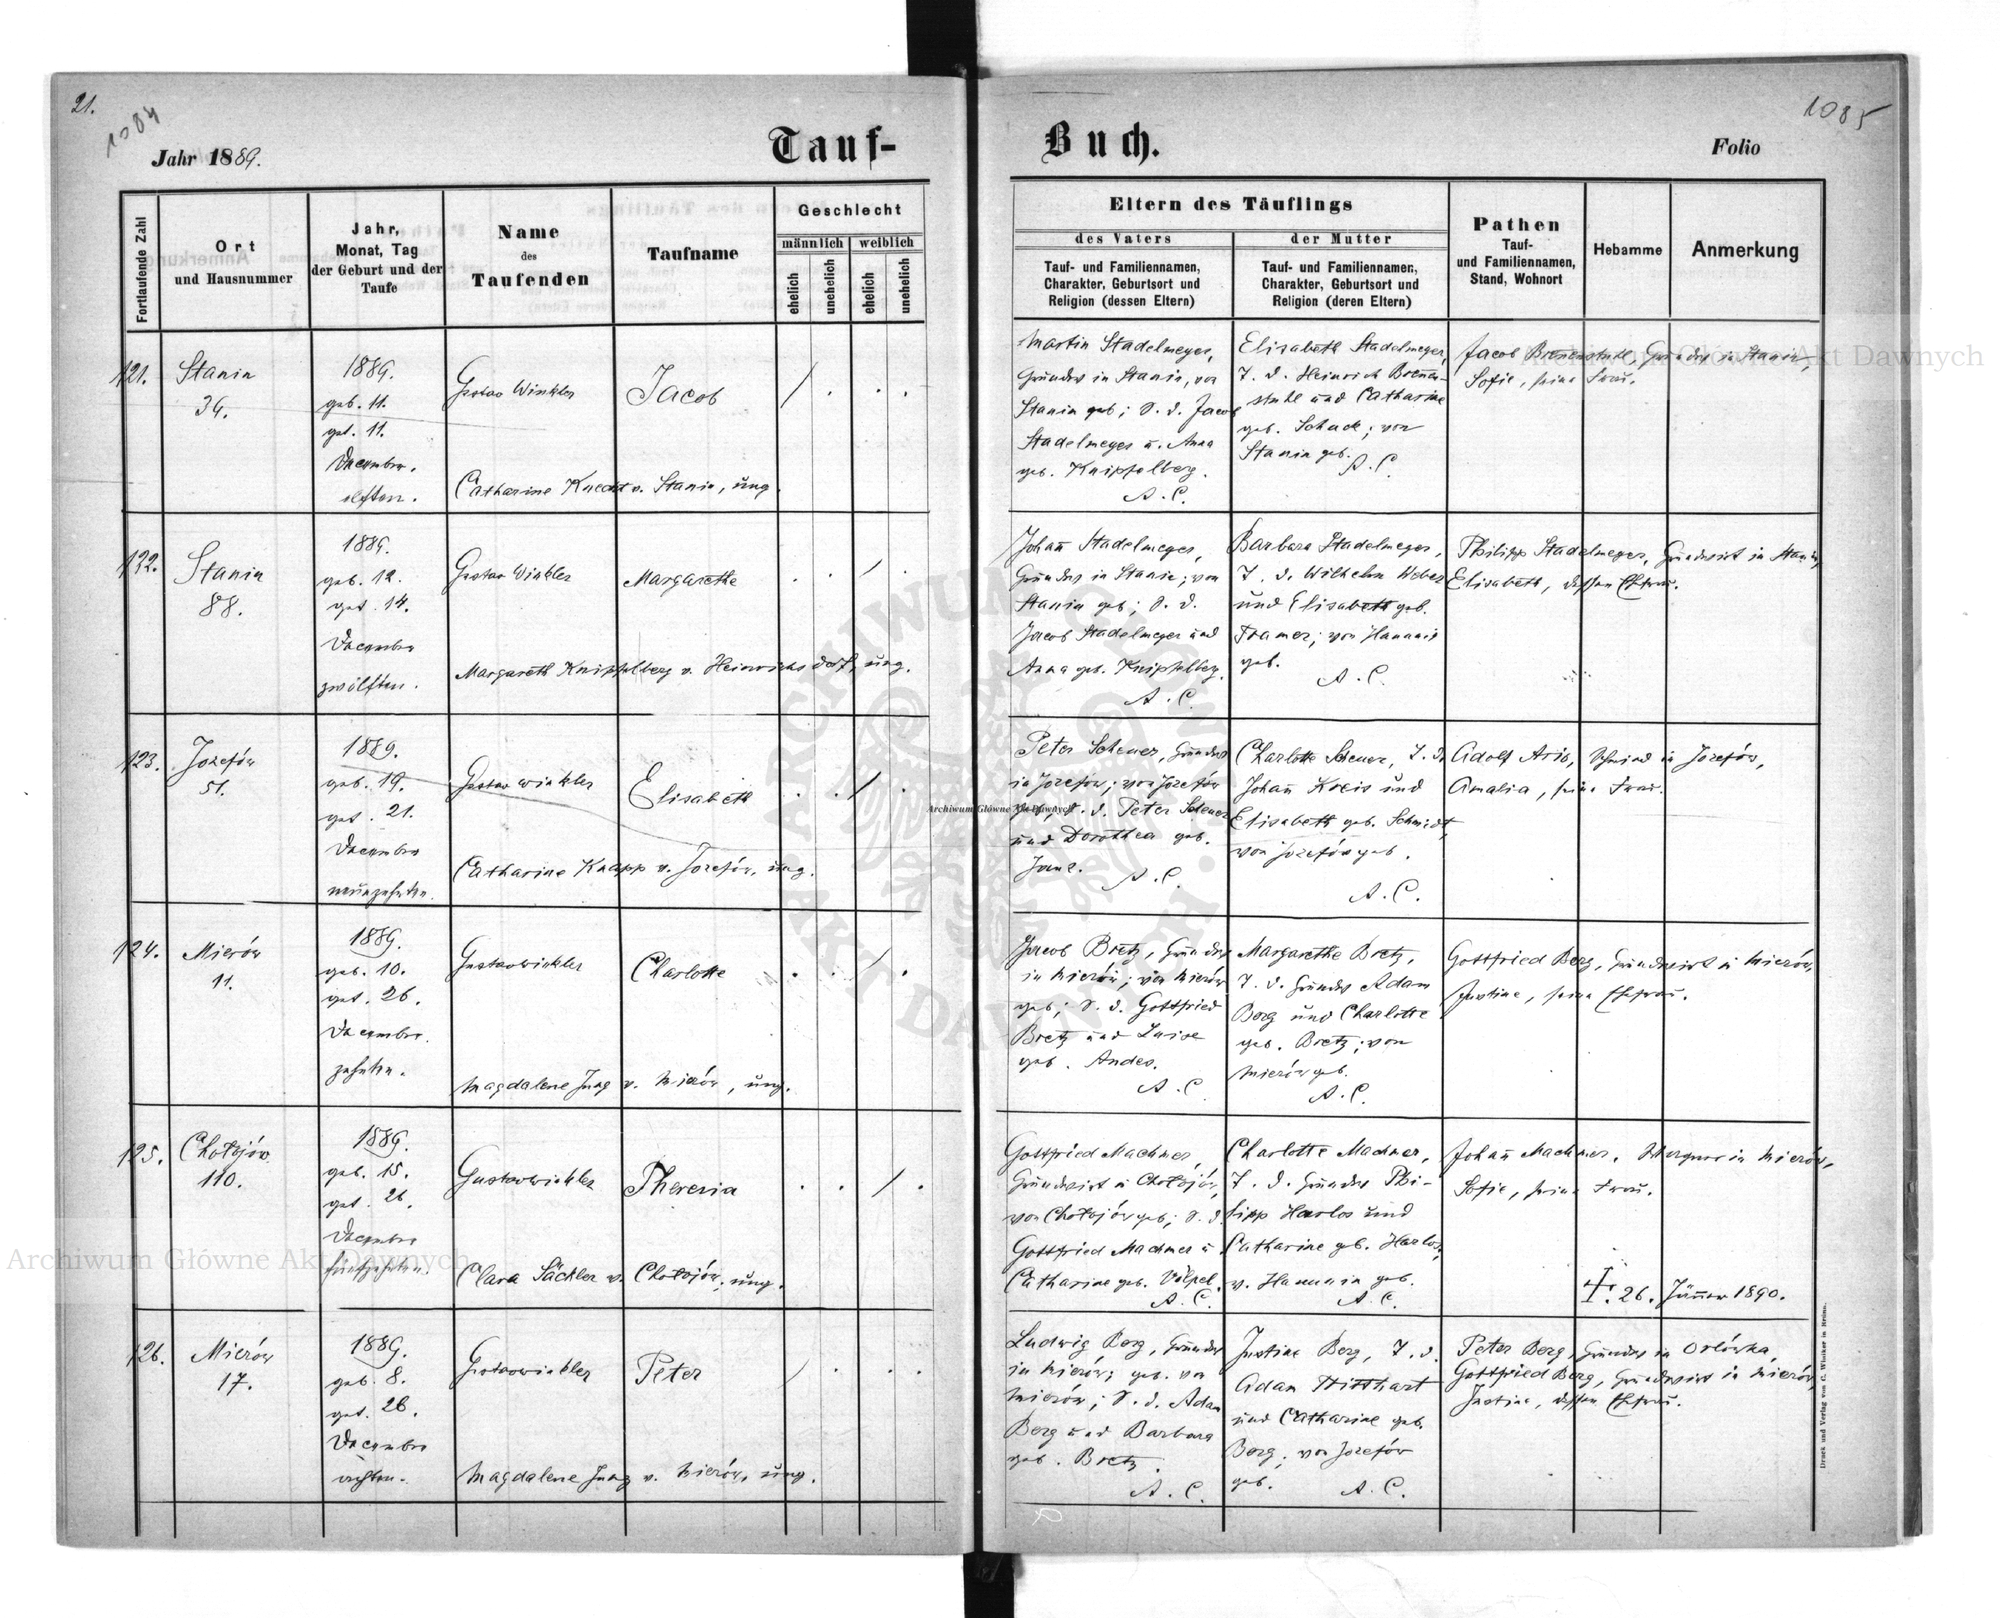 21.
1084
1085
Jahr 1889.
Tauf-
Buch.
Folio
Fortlaufende Zahl
Ort
und Hausnummer
Jahr,
Monat, Tag
der Geburt und der
Taufe
Name
des
Taufenden
Taufname
Geschlecht
männlich
weiblich
ehelich
unehelich
ehelich
unehelich
Eltern des Täuflings
des Vaters
der Mutter
Tauf- und Familiennamen,
Charakter, Geburtsort und
Religion (dessen Eltern)
Tauf- und Familiennamen,
Charakter, Geburtsort und
Religion (deren Eltern)
Pathen
Tauf-
und Familiennamen,
Stand, Wohnort
Hebamme
Anmerkung
121.
Stanin
34.
1889.
geb. 11.
get. 11.
December.
elften.
Gustav Winkler
Jacob
Catharine Knecht v. Stanin, ung.
Martin Stadelmeyer,
Grundw. in Stanin, von
Stanin geb; S. d. Jacob
Stadelmeyer u. Anna
geb. Knipfelberg.
A. C.
Elisabeth Stadelmeyer,
T. d. Heinrich Brenen-
stuhl und Catharine
geb. Schade; von
Stanin geb.
A. C
Jacob Brenenstuhl, Grundw. in Stanin,
Sofie, seine Frau.
122.
Stanin
88.
1889.
geb. 12.
get. 14.
December
zwölften.
Gustav Winkler
Margarethe
Margareth Knipfelberg v. Heinrichsdorf, ung.
Johan̄ Stadelmeyer,
Grundw. in Stanin; von
Stanin geb; S. d.
Jacob Stadelmeyer und
Anna geb. Knipfelberg.
A. C.
Barbara Stadelmeyer,
T. d. Wilhelm Weber
und Elisabeth geb.
Framer; von Hanunin
geb.
A. C.
Philipp Stadelmeyer, Grundwirt in Stanin,
Elisabeth, dessen Ehefrau.
123.
Jozefów
51.
1889.
geb. 19.
get. 21.
December
neunzehnten.
Gustav Winkler
Elisabeth
Catharine Knapp v. Jozefów, ung.
Peter Scheuer, Grundw.
in Jozefów; von Jozefów
geb; S. d. Peter Scheuer
und Dorothea geb.
A. C.
Charlotte Scheuer, T. d.
Johan̄ Kreis und
Elisabeth geb. Schmidt,
von Jozefów geb.
A. C.
Adolf Aris, Schmied in Jozefów,
Amalia, seine Frau.
124.
Mierów
11.
1889.
geb. 10.
get. 26.
December.
zehnten.
Gustav Winkler
Charlotte
Magdalene Jung v. Mierów, ung.
Jacob Bretz, Grundw.
in Mierów; von Mierów
geb; S. d. Gottfried
Bretz und Luise
geb. Andes.
A. C
Margarethe Bretz,
T. d. Grundw. Adam
Berg und Charlotte
geb. Bretz; von
Mierów geb.
A. C.
Gottfried Berg, Grundwirt in Mierów,
Justine, seine Ehefrau.
125.
Chołojów
110.
1889.
geb. 15.
get. 26.
December
fünfzehnten.
Gustav Winkler
Theresia
Clara Säckler v. Chołojów, ung.
Gottfried Machmer,
Grundwirt in Chołojów,
von Chołojów geb; S. d.
Gottfried Machmer u.
Catharine geb. Völpel.
A. C.
Charlotte Machmer,
T. d. Grundw. Phi-
lipp Harlos und
Catharine geb. Harlos,
v. Hanunin geb.
A. C.
Johan̄ Machmer, in Mierów,
Sofie, seine Frau.
†. 26. Jän̄er 1890.
126.
Mierów
17.
1889.
geb. 8.
get. 26.
December
achten.
Gustav Winkler
Peter
Magdalene Jung v. Mierów, ung.
Ludwig Berg, Grundw.
in Mierów; geb. von
Mierów; S. d. Adam
Berg und Barbara
geb. Bretz.
A. C.
Justine Berg, T. d.
Adam
und Catharine geb.
Berg; von Jozefów
geb.
A. C.
Peter Berg, Grundw. in Orłówka,
Gottfried Berg, Grundwirt in Mierów,
Justine, dessen Ehefrau.
Druck und Verlag von C. Winiker in Brünn.
Archiwum Główne Akt Dawnych
Archiwum Główne Akt Dawnych
Archiwum Główne Akt Dawnych
ARCHIWUM GŁÓWNE AKT DAWNYCH